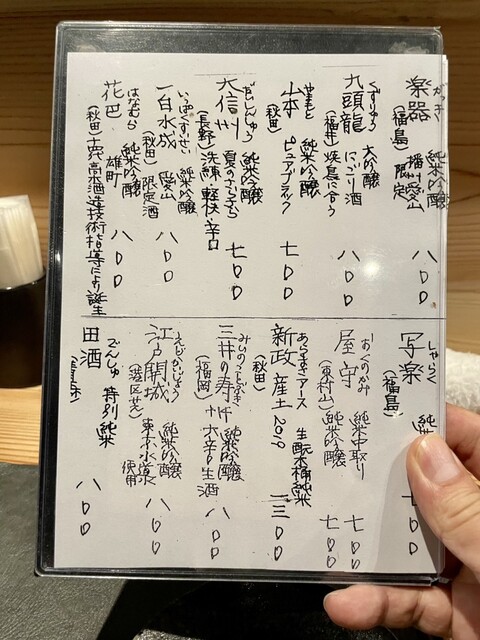 楽器 がっき (福島) 純米吟醸 播州愛山 限定 八〇〇
九頭龍 くずりゅう (福井) 大吟醸 にごり酒 焼鳥に合う 八〇〇
山本 やまもと (秋田) 純米吟醸 ピュアブラック 七〇〇
大信州 だいしんしゅう (長野) 純米吟醸 夏のさらさら 洗練・軽快・辛口 七〇〇
一白水成 いっぱくすいせい (秋田) 純米吟醸 愛山 限定酒 八〇〇
花邑 はなむら (秋田) 純米吟醸 雄町 十四代高木酒造技術指導により誕生 八〇〇
写楽 しゃらく (福島) 純米 七〇〇
屋守 おくのかみ (東村山) 純米中取り 七〇〇 純米吟醸 七〇〇
新政 あらまさ (秋田) アース 産土 2019 生酛木桶純米 一三〇〇
三井の寿 みいのことぶき (福岡) 純米吟醸 +14 大辛口生酒 八〇〇
江戸開城 えどかいじょう (港区芝) 純米吟醸 東京水道水使用 八〇〇
田酒 でんしゅ (青森) 特別純米 八〇〇